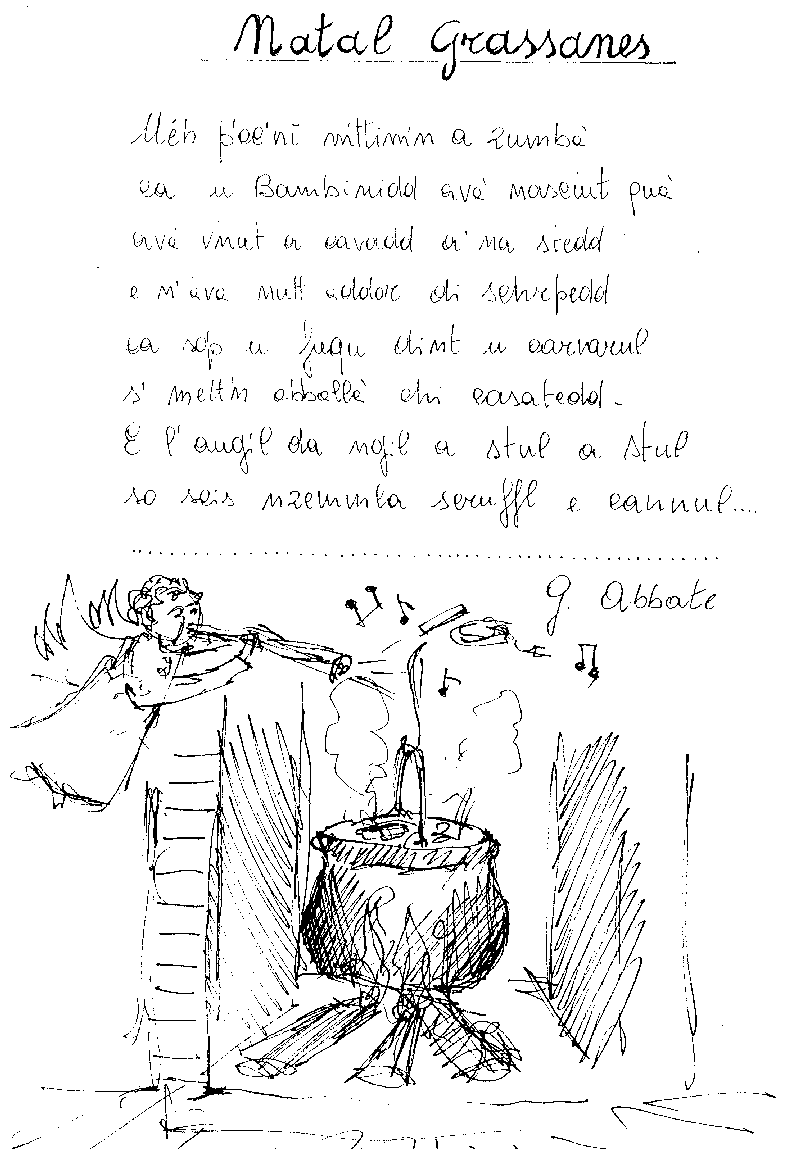 Natal Grassanes
Méh p'cc'nì mittimin a zumbà
ca u Bambinidd avà nasciut quà
avà vnut a cavadd a' na stedd
e n'ava mitt addor di schrpedd
ca sop u fuqu dint u carvarul
s' mettn abballà chi casatedd.
E l'angil da ngil a stul a stul
so scis nzemmla scruffl e cannul....
G. Abbate